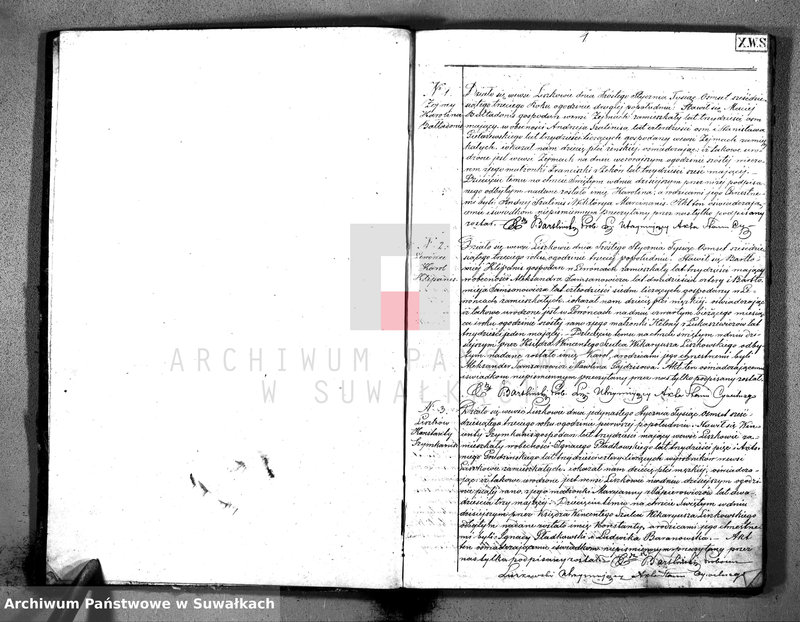 1
X.W.S
N. 1.
Zeymy
Karolina
Baltadonis
Działo się we wsi Liszkowie dnia szóstego Stycznia Tysiąc Osmset sześćdzie
siątego trzeciego Roku o godzinie drugiej popołudniu. Stawił się Maciej
gospodarz we wsi Zejmach zamieszkały lat trzydzieści osm
mający, w obecności Andrzeja Szalinisa lat czterdzieści osm i Stanisława
lat trzydzieści liczących gospodarzy we wsi Zejmach zamiesz
kałych, i okazał nam dziecię płci żeńskiej, oświadczając, iż takowe uro
dzone jest we wsi Zejmach na dniu wczorajszym o godzinie szóstej wieczo
rem z jego małżonki Franciszki z lat trzydzieści sześć mającej.
Dziecięciu temu na chrzcie świętym w dniu dzisiejszym przez niżej podpisa
nego odbytym nadane zostało imię Karolina, a rodzicami jego chrzestne
mi byli Andrzej Szalinis i Wiktorya Akt ten oświadczają
cemu i świadkom niepismiennym przeczytany przez nas tylko podpisany
został. Xdz Barśliński Prob. Utrzymujący Akta Stanu Cy
N. 2.
Karol
Klepanis
Działo się we wsi Liszkowie dnia szóstego Stycznia Tysiąc Osmset sześćdzie
siątego trzeciego roku, o godzinie trzeciej popołudniu. Stawił się Bartło
miej gospodarz w zamieszkały lat trzydzieści mający
w obecności Aleksandra Samsanowicza lat dwadzieścia cztery i Bartło
mieja Samsanowicza lat czterdzieści siedm liczących, gospodarzy w
zamieszkałych, i okazał nam dziecię płci męzkiej, oświadczając
iż takowe urodzone jest w na dniu czwartym bieżącego miesią
ca i roku o godzinie szóstej rano z jego małżonki Heleny z Łukaszewiczów lat
trzydzieści jeden mającej. Dziecięciu temu na chrzcie świętym w dniu dzi
siejszym, przez Księdza Wincentego Szulca Wikaryusza Liszkowskiego odby
tym nadane zostało imię Karol, a rodzicami jego chrzestnemi byli
Aleksander Samsanowicz i Pawlina Akt ten oświadczającemu
i świadkom niepismiennym przeczytany przez nas tylko podpisany został.
Xdz Barśliński Prob. Utrzymujący Akta Stanu Cywilnego
N. 3.
Liszków
Konstanty
Szymkanis
Działo się we wsi Liszkowie dnia jedynastego Stycznia Tysiąc Osmset sześć
dziesiątego trzeciego roku o godzinie pierwszej popołudniu. Stawił się Win
centy Szymkanis gospodarz lat trzydzieści mający we wsi Liszkowie za
mieszkały w obecności Ignacego Hładkowskiego lat trzydzieści pięć i Anto
niego lat trzydzieści cztery liczących wyrobników we wsi
Liszkowie zamieszkałych, i okazał nam dziecię płci męzkiej, oświadcza
jąc, iż takowe urodzone jest we wsi Liszkowie na dniu dzisiejszym o godzi
nie piątej rano, z jego małżonki Maryanny z lat dwa
dzieścia trzy mającej. Dziecięciu temu na chrzcie świętym w dniu
dzisiejszym przez Księdza Wincentego Szulca Wikaryusza Liszkowskiego
odbytym nadane zostało imię Konstanty, a rodzicami jego chrzestne
mi byli Ignacy Hładkowski i Ludwika Baranowska. Akt
ten oświadczającemu i świadkom niepismiennym przeczytany przez
nas tylko podpisany został. Xdz Barśliński Proboszcz
Liszkowski Utrzymujący Akta Stanu Cywilnego
ARCHIWUM PA
W SUWAŁK
Archiwum Państwowe w Suwałkach